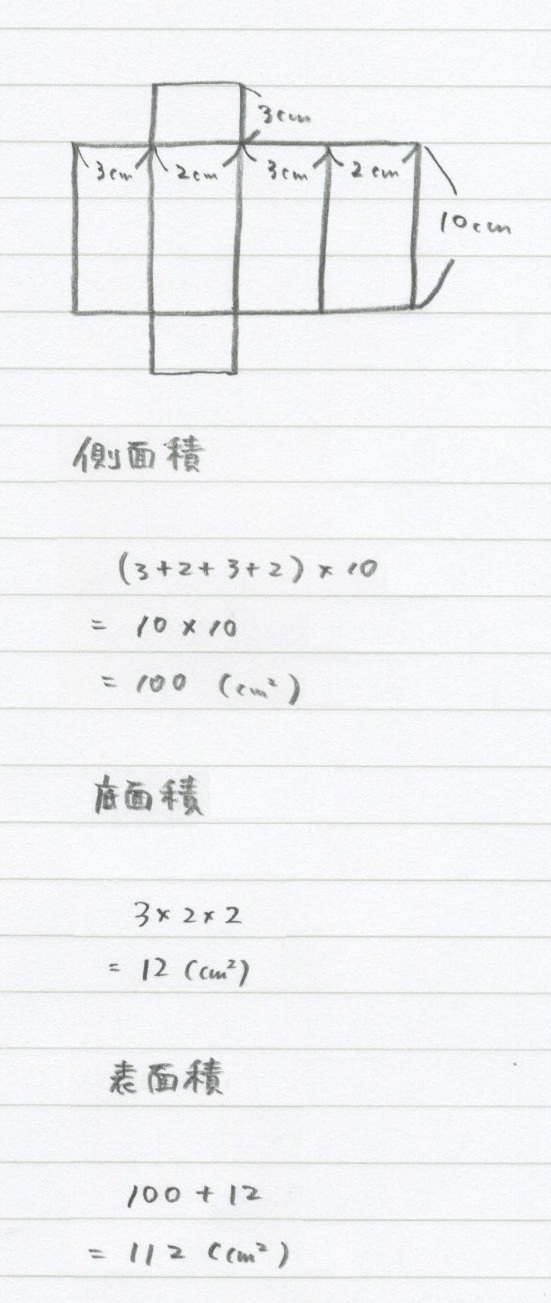 3cm
3cm 2cm 3cm 2cm
10cm
側面積
(3+2+3+2)×10
= 10×10
= 100 (cm²)
底面積
3×2×2
= 12 (cm²)
表面積
100+12
= 112 (cm²)